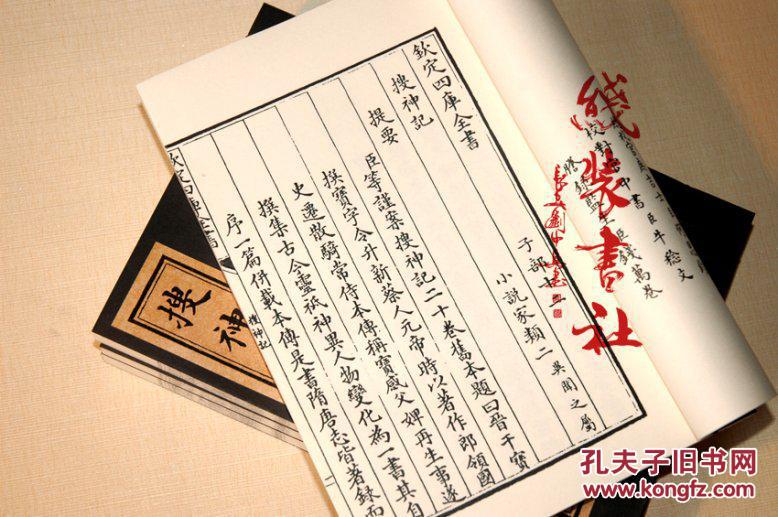 欽定四庫全書
搜神記
提要
子部十二
小説家類二 異聞之屬
臣等謹案搜神記二十卷舊本題曰晉干寳
撰寳字令升新蔡人元帝時以著作郎領國
史遷散騎常侍本傳稱寳感父婢再生事遂
撰集古今靈祇神異人物變化為一書其自
序一篇併載本傳是書隋唐志皆著録而
欽定四庫全書
搜神記
一
校對官中書臣牛稔文
謄録監生臣錢萬卷
線裝書社
搜神
孔夫子旧书网
www.kongfz.com